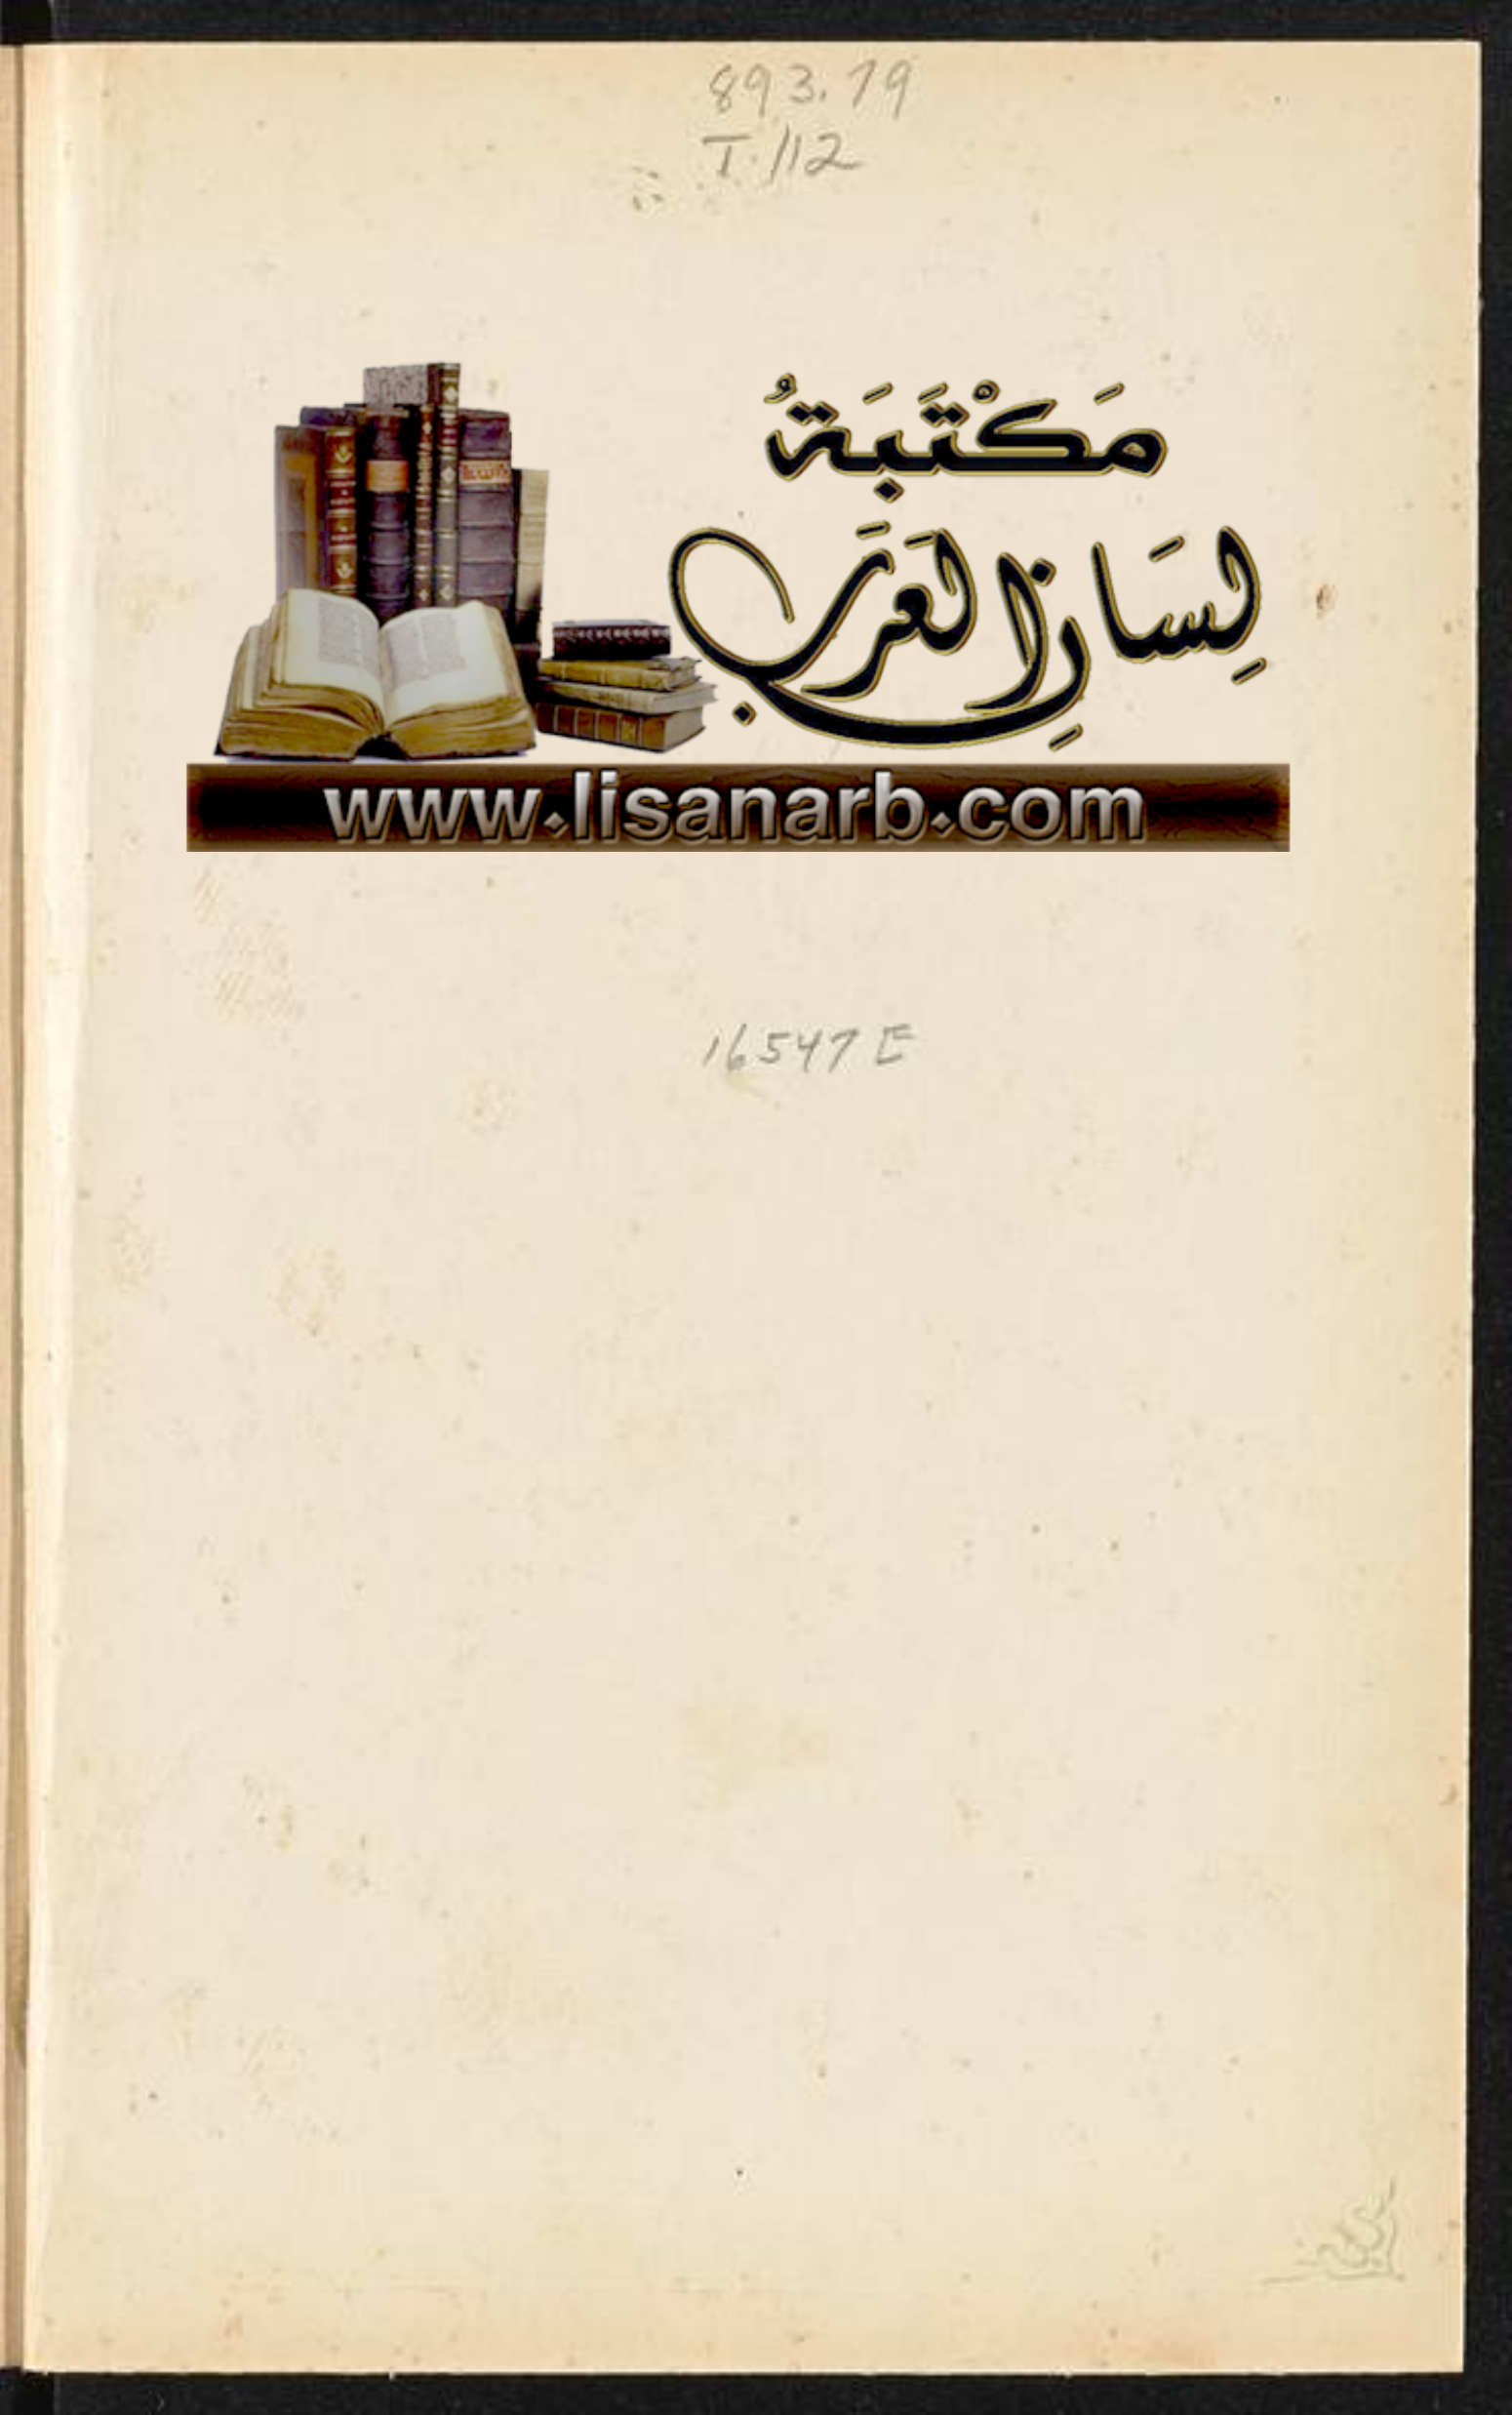 893.79
I.112
مَكْتَبَةُ
لِسَانِ العَرَبِ
www.lisanarb.com
16547 E